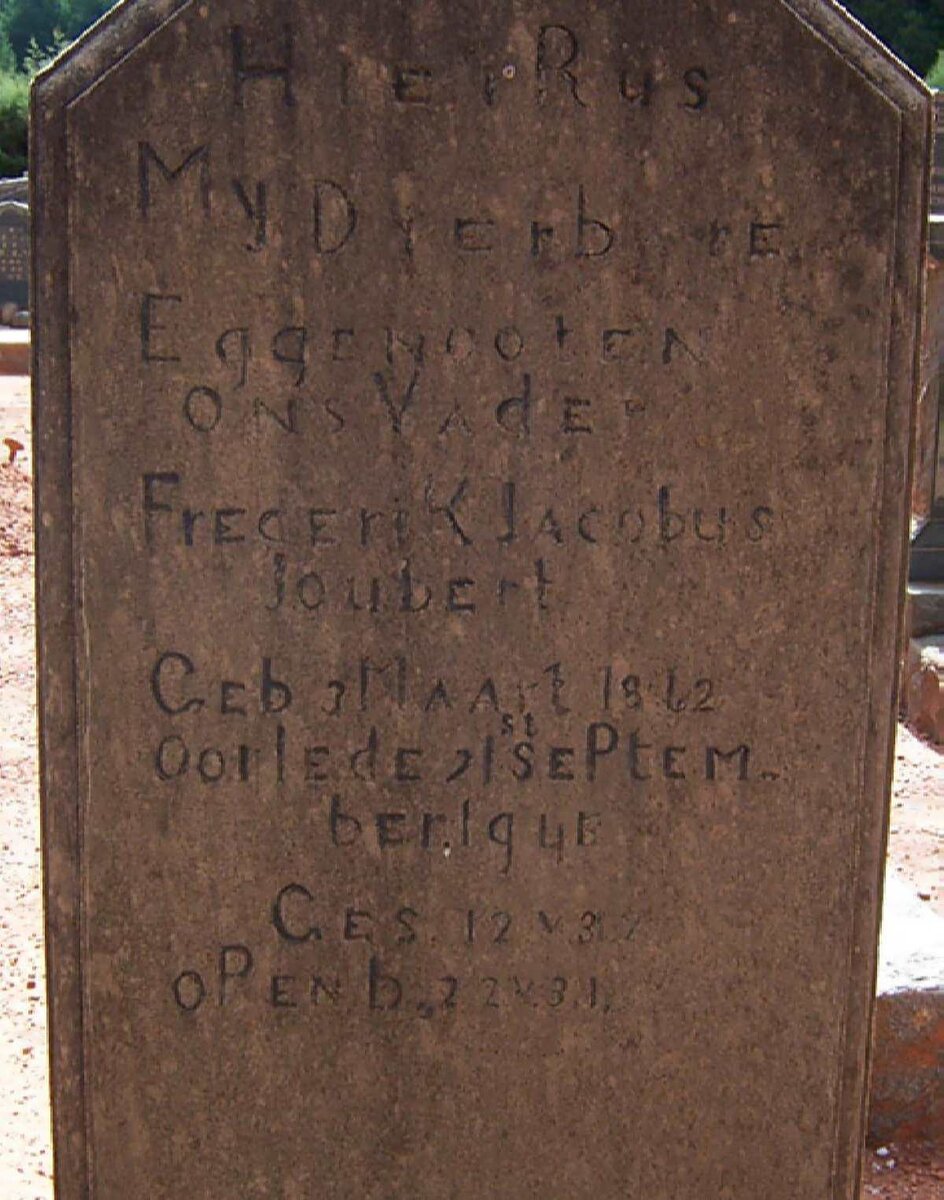 Hier Rus
My Dierb re
Eggenooten
Ons Vader
Frederik Jacobus
Joubert
Geb 3 Maart 1862
Oorlede 21st Septem-
ber
Ges. 12 v 3.2
Openb. 22 v 3.1.